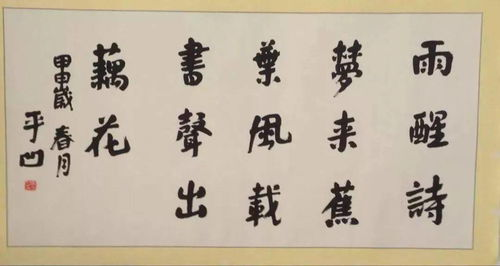 雨醒詩
夢来蕉
葉風載
書聲出
藕花
甲申歳春月
平凹